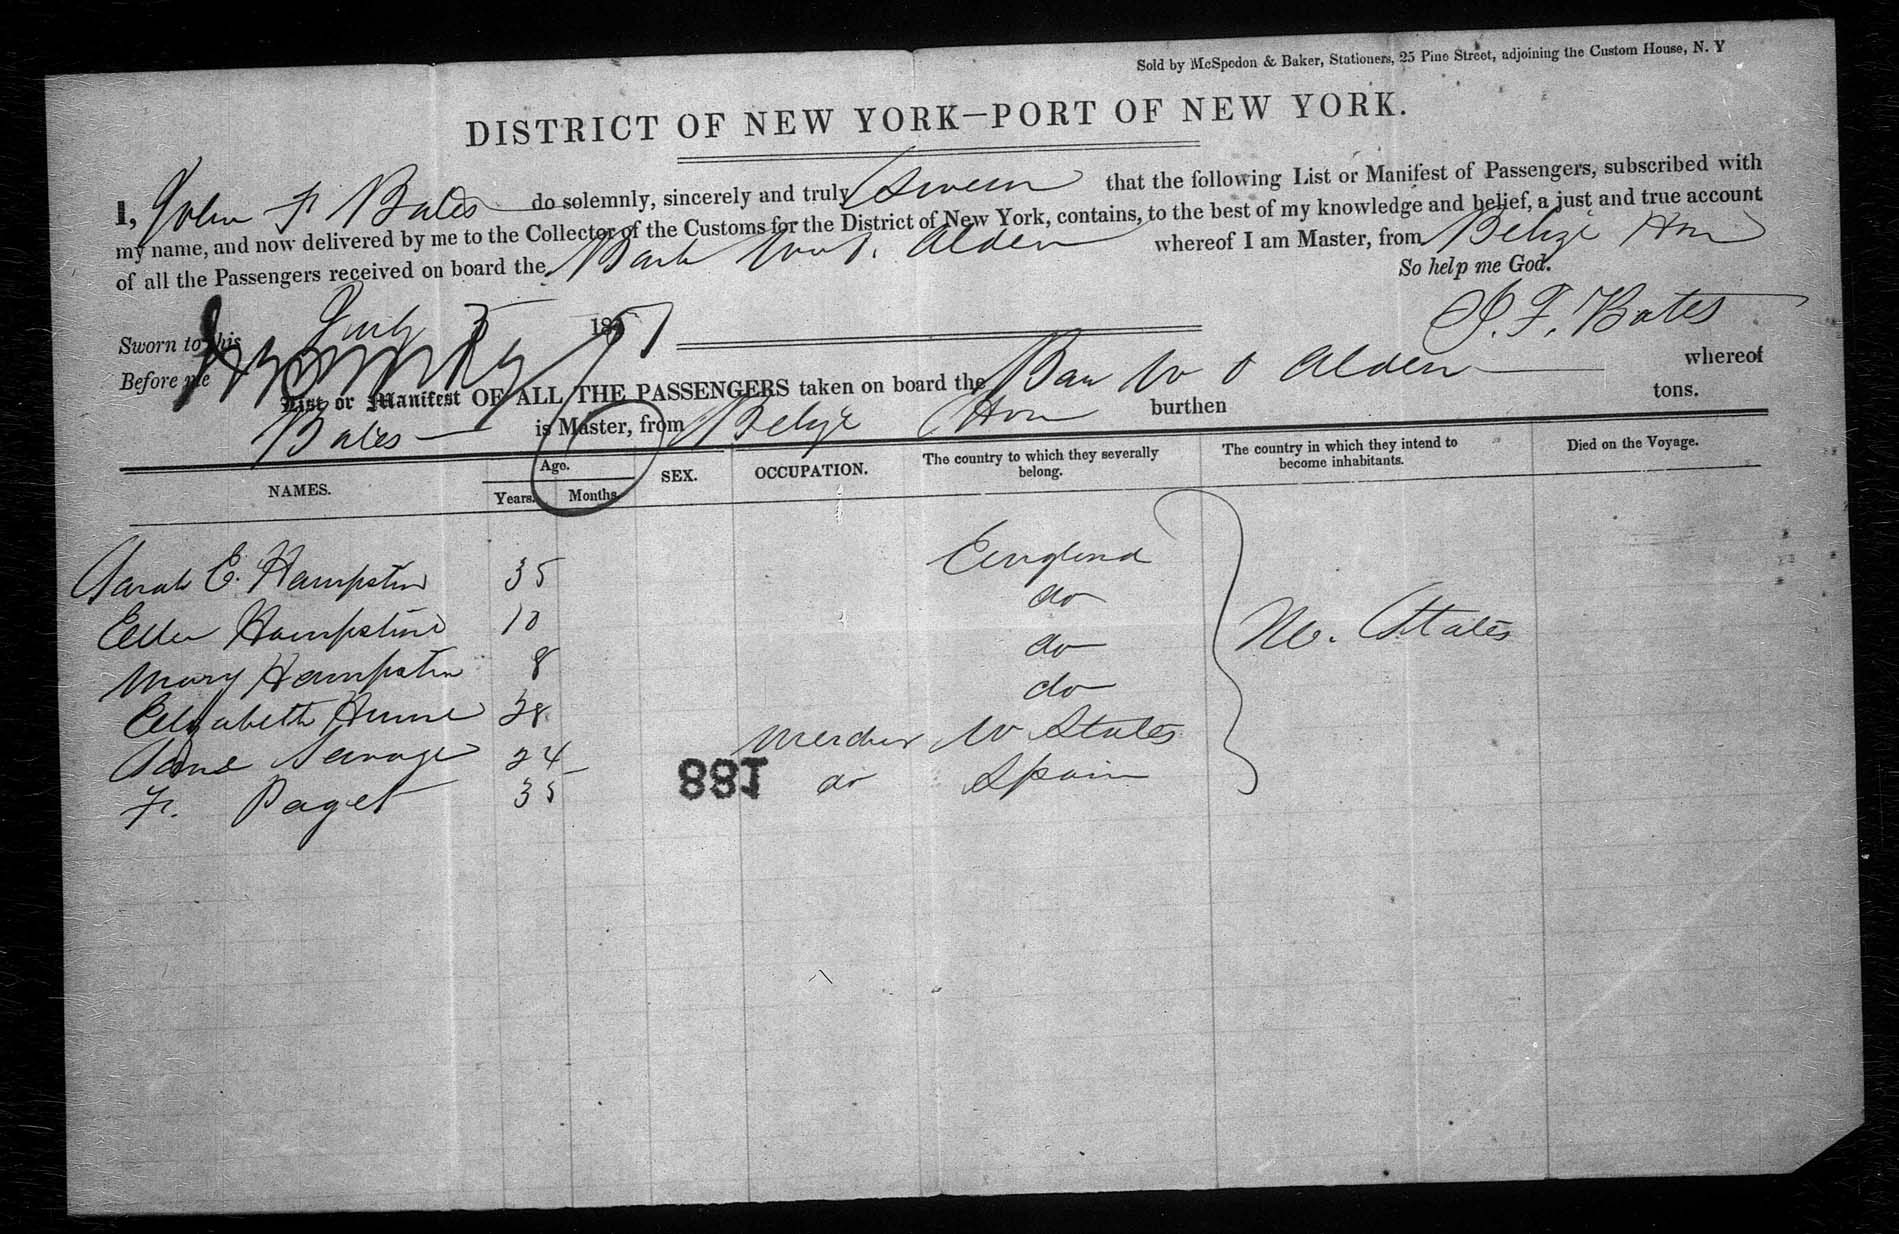 Sold by McSpedon & Baker, Stationers, 25 Pine Street, adjoining the Custom House, N. Y
DISTRICT OF NEW YORK—PORT OF NEW YORK.
I, John F Bates do solemnly, sincerely and truly Swear that the following List or Manifest of Passengers, subscribed with
my name, and now delivered by me to the Collector of the Customs for the District of New York, contains, to the best of my knowledge and belief, a just and true account
of all the Passengers received on board the Bark Wm O. Alden whereof I am Master, from Belize Hon
So help me God.
Sworn to this July 5 1851
J. F. Bates
Before me
List or Manifest OF ALL THE PASSENGERS taken on board the Bark W O Alden whereof
Bates is Master, from Belize Hon burthen tons.
NAMES. Age. Years. Months. SEX. OCCUPATION. The country to which they severally belong. The country in which they intend to become inhabitants. Died on the Voyage.
Sarah E. Hampstin 35 England
Ellen Hampstin 10 do
Mary Hampstin 8 do
U. States
Elizabeth Hume 28 do
Savage 24 U States
Fr. Paget 35 do Spain
188